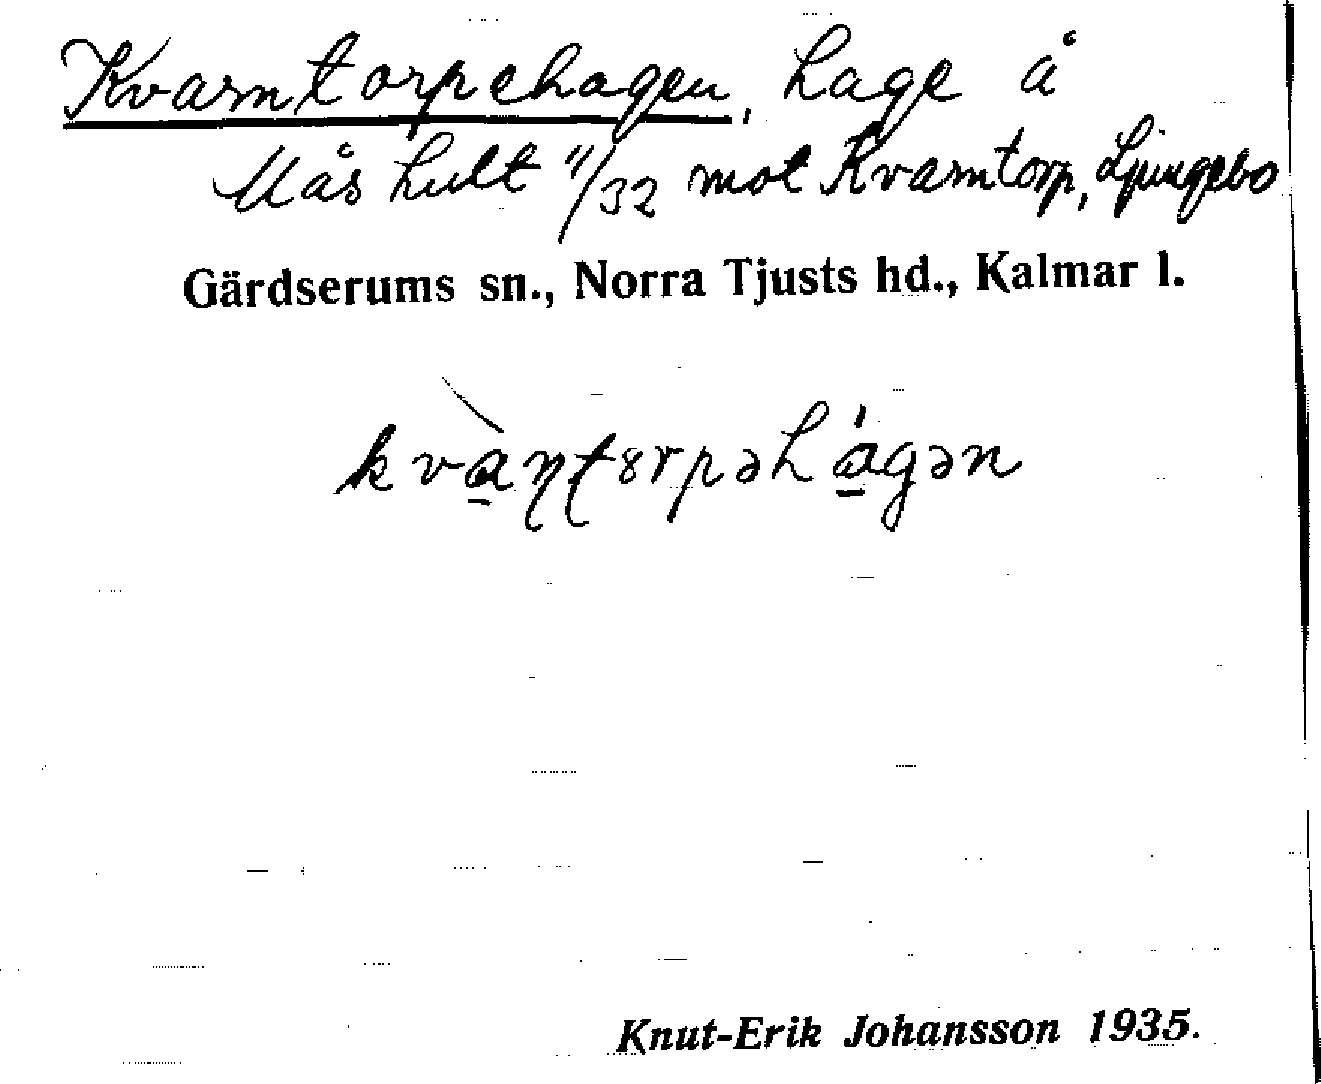 Kvarntorpehagen, hage å
Måshult 11/32 mot Kvarntorp, Ljungebo
Gärdserums sn., Norra Tjusts hd., Kalmar l.
kvà̱ɳʈɤrpəhá̱gən
Knut-Erik Johansson 1935.